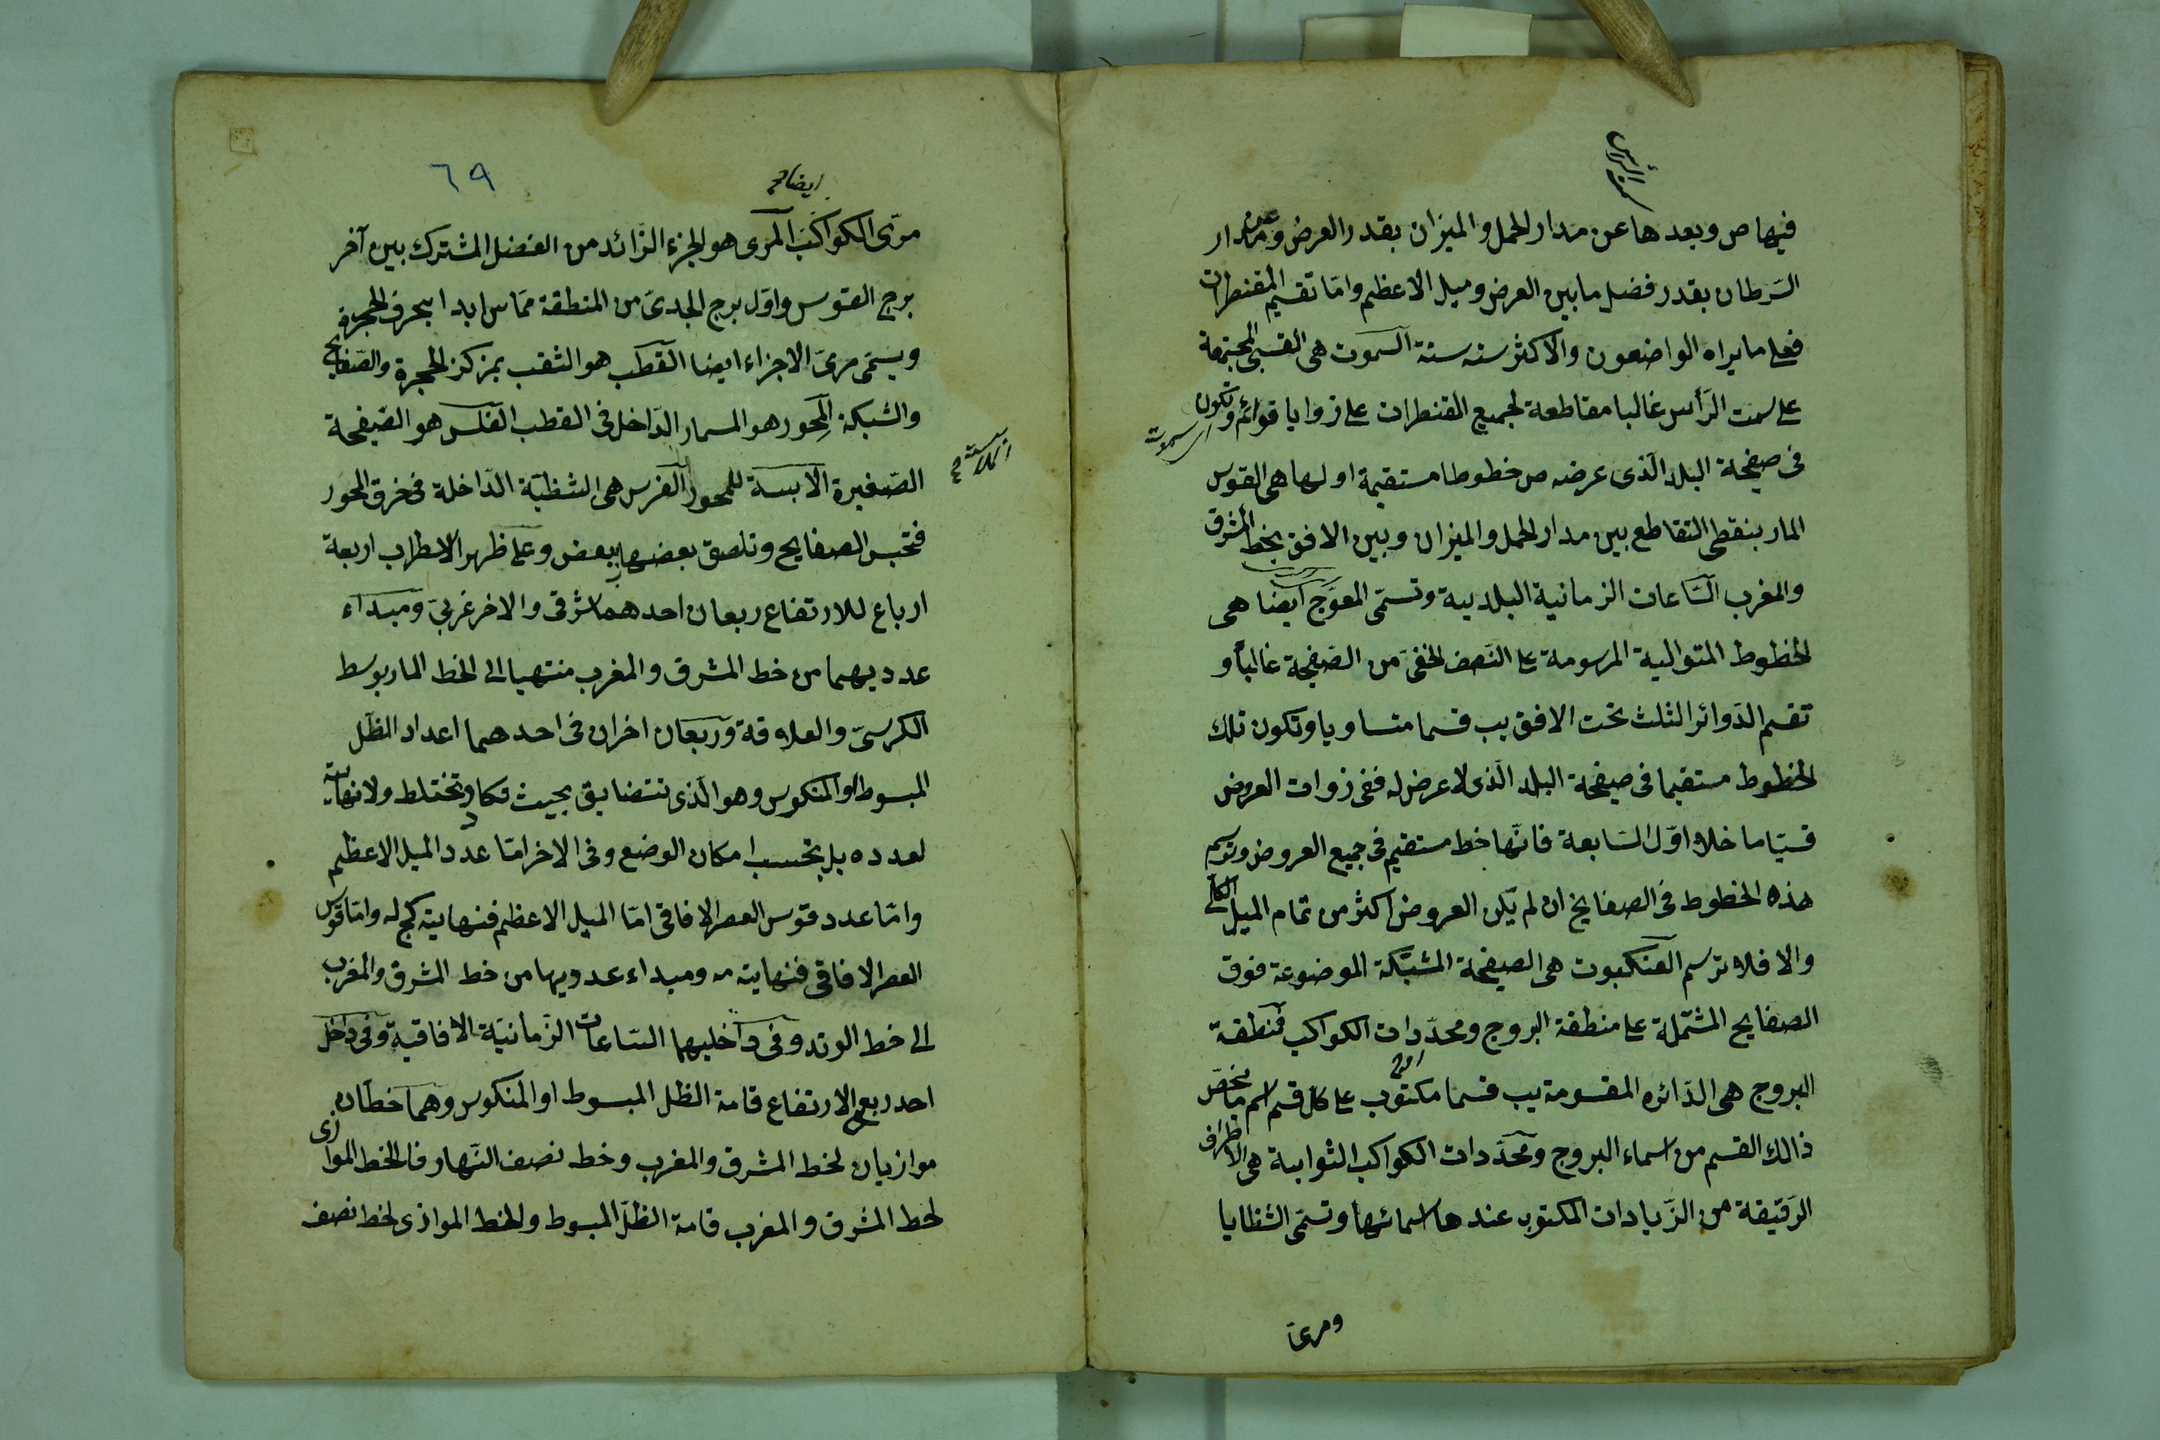 فيها ص وبعدها عن مدار الحمل والميزان بقدر العرض وعن مدار
السرطان بقدر فضل مابين العرض وميل الاعظم وامّا تقسيم المقنطرات
فعلى مايراه الواضعون والاكثر ستة ستة السموت هى القسى المجتمعة
على سمت الرّأس غالبا مقاطعة لجميع المقنطرات على زوايا قوائم وتكون
فى صفيحة البلد الّذى عرضه ص خطوطا مستقيمة اولها هى القوس
المار بنقطى التقاطع بين مدار الحمل والميزان وبين الافق بخط المشرق
والمغرب السّاعات الزمانية البلدية وتسمّى المعوّج ايضا هى
الخطوط المتوالية المرسومة على النّصف الخفى من الصّفيحة غالباً و
تقسم الدّوائر الثلث تحت الافق يب قسما متساويا وتكون تلك
الخطوط مستقيما فى صفيحة البلد الّذى لا عرض له ففى ذوات العروض
قسيّا ما خلا اوّل السّابعة فانّها خط مستقيم فى جميع العروض وترسم
هذه الخطوط فى الصفايح ان لم يكن العروض اكثر من تمام الميل الكلّى
والا فلا ترسم العنكبوت هى الصفيحة المشبّكة الموضوعة فوق
الصفايح المشتملة على منطقة البروج ومحدّدات الكواكب فمنطقة
البروج هى الدّائره المقسومة يب قسما مكتوب على كلّ قسم اسم ما يخصّ
ذالك القسم من اسماء البروج ومحدّدات الكواكب الثوابتة هى الاطراف
الرّقيقة من الزّيادات المكتوب عندها اسمائها وتسمّى الشظايا
ومرئ
٦٩
ايضا
مرّى الكواكب المرى هو الجزء الزّائد من الفضل المشترك بين آخر
برج القوس واوّل برج الجدىّ من المنطقة ممّاس ابدا بحرف الحجرة
ويسمّى مرىّ الاجزاء ايضا القطب هو الثقب بمركز الحجرة والصّفايح
والشبكة المحور هو المسمار الدّاخل فى القطب الفلس هو الصّفيحة
الصّغيرة الابسة للمحور الفرس هى الشظيّة الدّاخلة فى خرق المحور
فتحبس الصفايح وتلصق بعضها ببعض وعلى ظهر الاسطرلاب اربعة
ارباع للارتفاع ربعان احدهما شرقى والاخر غربىّ ومبداء
عدديهما من خط المشرق والمغرب منتهيا الى الخط المار بوسط
الكرسىّ والعلاقة وربعان اخران فى احدهما اعداد الظّل
المبسوط او المنكوس وهو الّذى تتضايق بحيث تكاد تختلط ولا نهاية
لعدده بل بحسب امكان الوضع وفى الاخر امّا عدد الميل الاعظم
وامّا عدد قوس العصر الافاقى امّا الميل الاعظم فنهايته كج له وامّا قوس
العصر الافاقى فنهايته مه ومبداء عدديها من خط المشرق والمغرب
الى خط الوتد وفى داخليهما السّاعات الزّمانيّة الافاقية وفى داخل
احد ربع الارتفاع قامة الظل المبسوط او المنكوس وهما خطّان
موازيان لخط المشرق والمغرب وخط نصف النّهار فالخط الموازى
لخط المشرق والمغرب قامة الظلّ المبسوط والخط الموازى لخط نصف